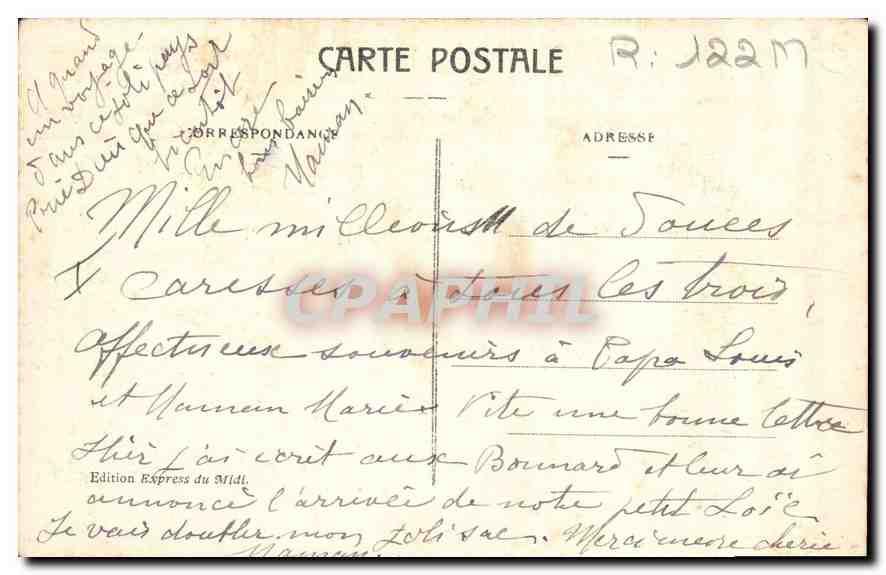 CARTE POSTALE
R: 122M
A quand
un voyage
dans ce joli pays
Dieu que ce soit
bientôt
Encore
bons baisers
Maman.
CORRESPONDANCE
ADRESSE
Mille millions de douces
caresses à tous les trois,
affectueux souvenirs à Papa Louis
et Maman Marie. Vite une bonne lettre
Hier j'ai écrit aux Bonnard et leur ai
Edition Express du Midi.
annoncé l'arrivée de notre petit Loïc
Je vais doubler mon joli sac. Merci encore chérie
Maman.
CPAPHIL